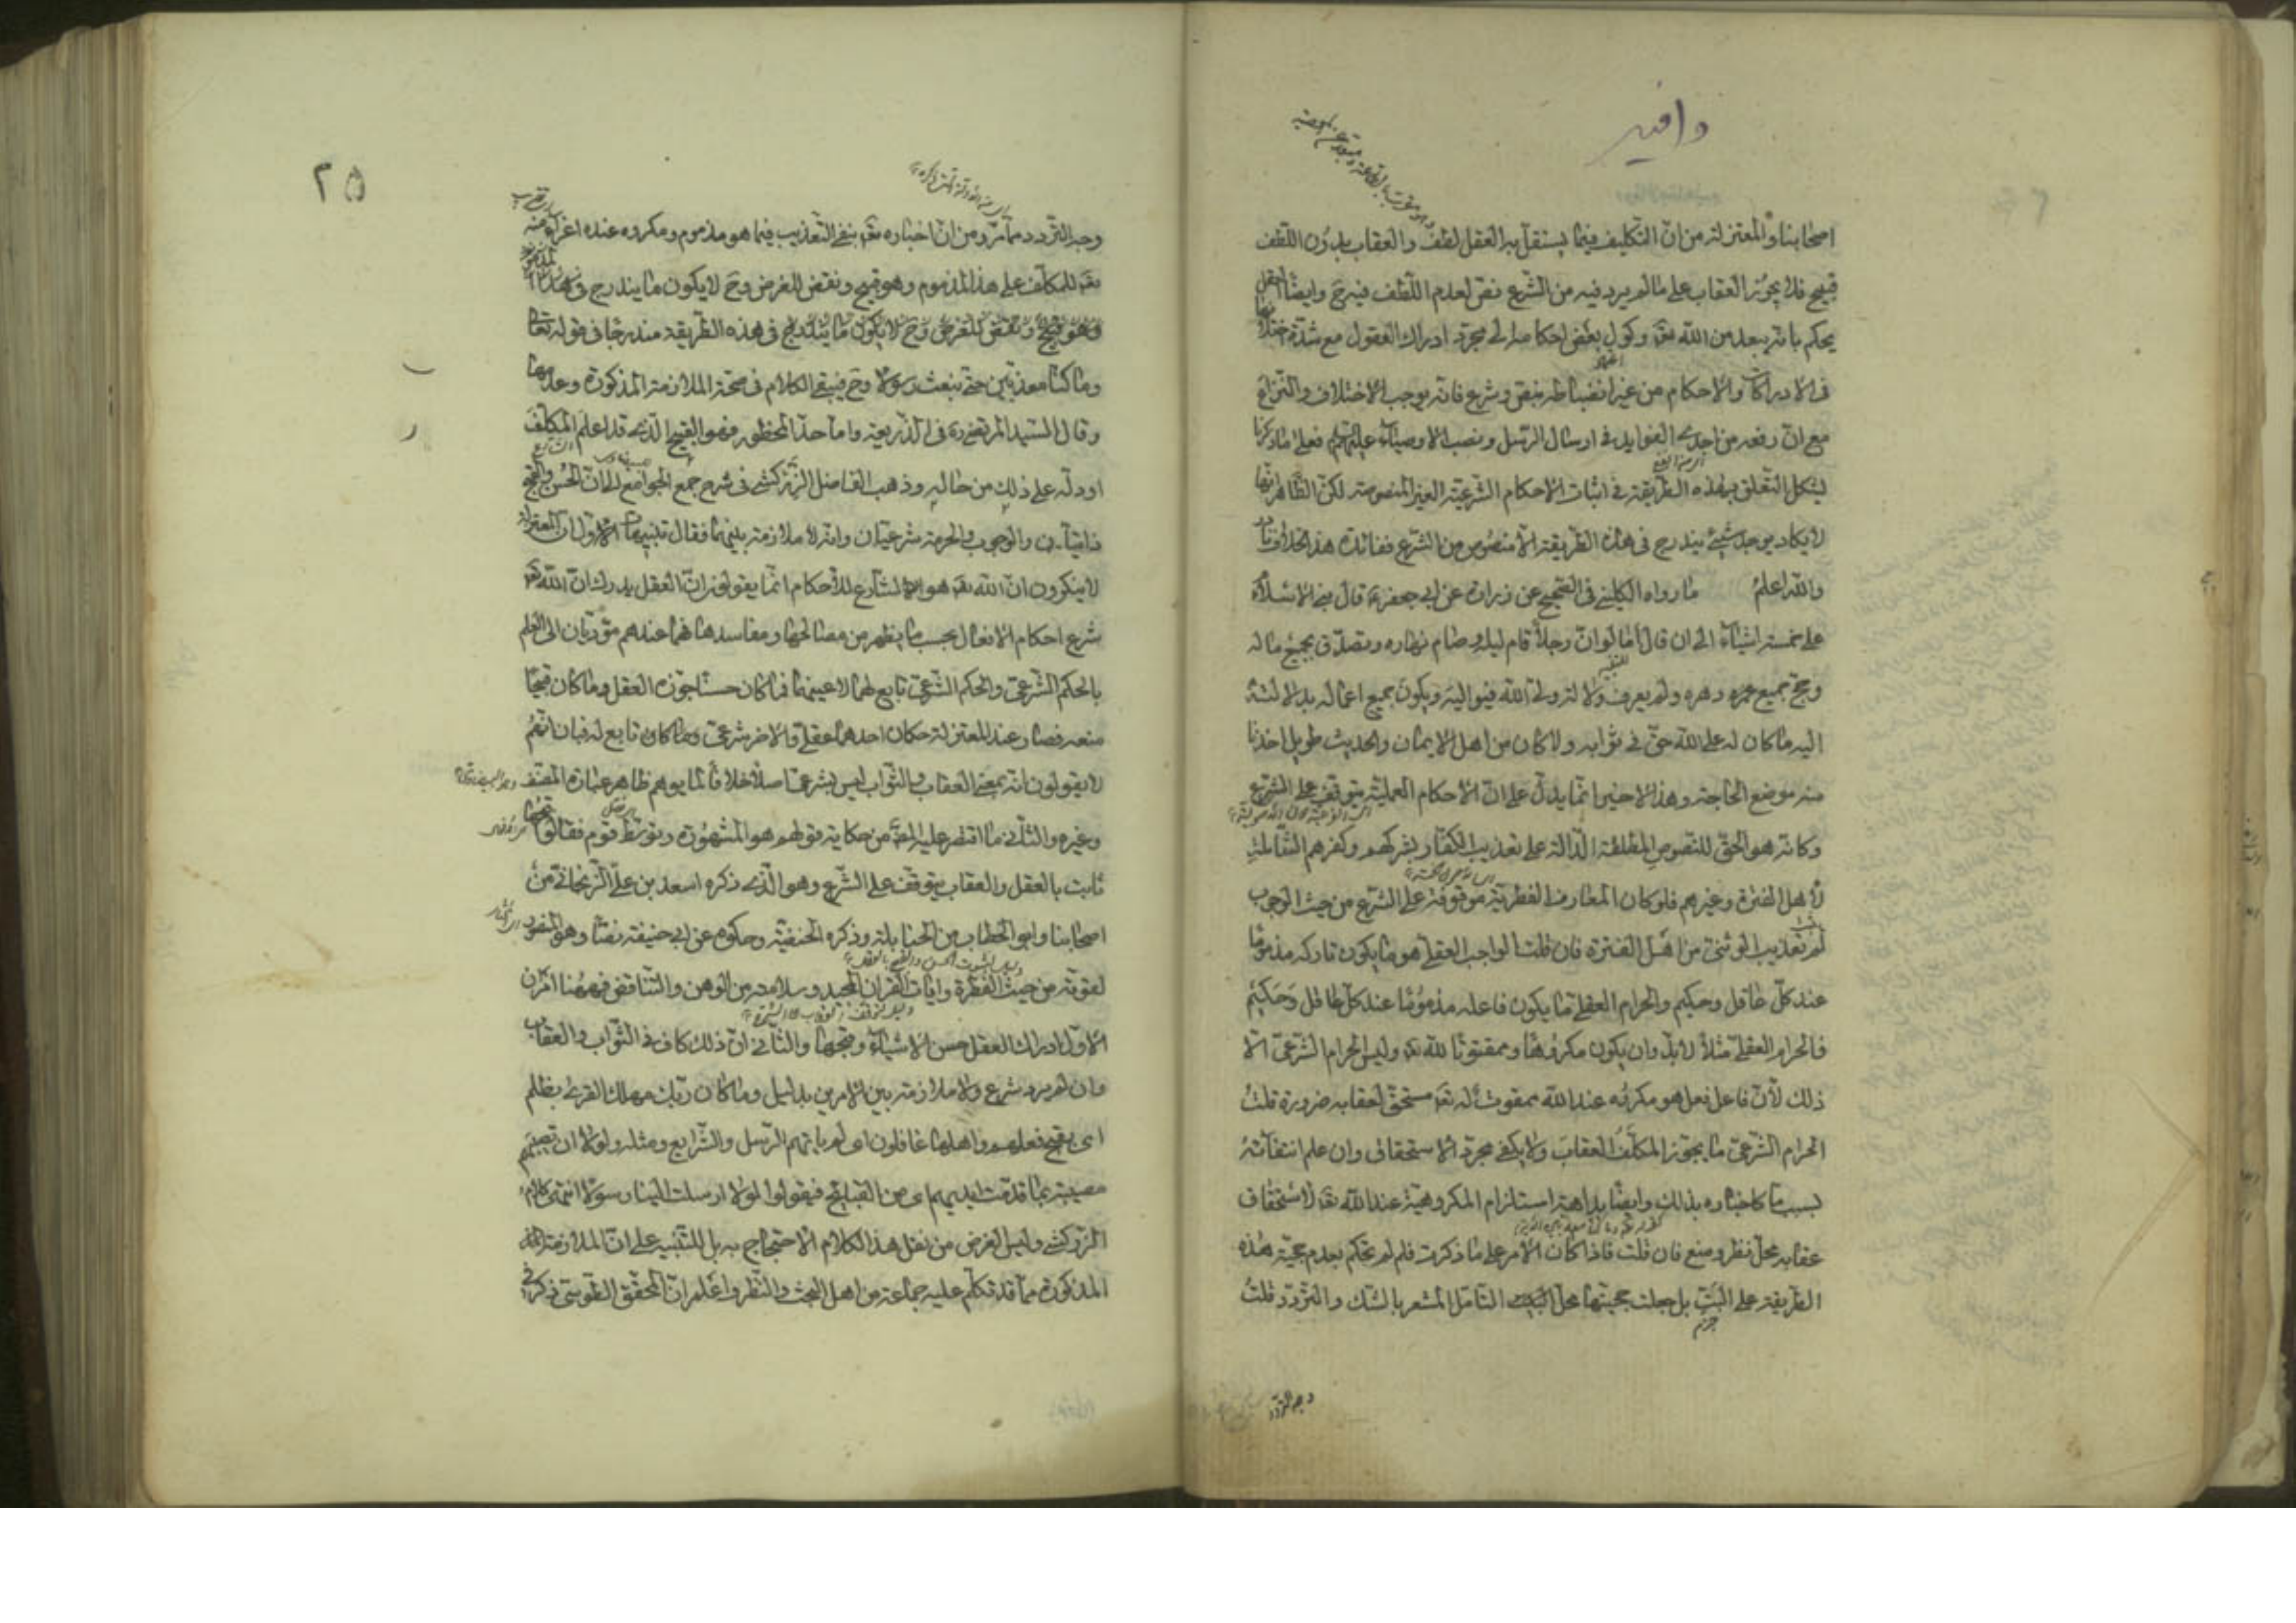 وافيه
اصحابنا والمعتزلة من ان التكليف فيما يستقل به العقل لطف والعقاب بدون اللطف
قبيح فلا يجوز العقاب على ما لم يرد فيه من الشرع نص لعدم اللطف فيه ح وايضا العقل
يحكم بانه يبعد من الله تعه وكول بعض احكامه الى مجرد ادراك العقول مع شدة اختلافها
فى الادراكات والاحكام من غير انضباطه بنص وشرع فانه يوجب الاختلاف والنزاع
مع ان رفعه من احدى الفوايد فى ارسال الرسل ونصب الاوصياء عليهم السلم فعلى ما ذكرنا
يشكل التعلق بهذه الطريقة فى اثبات الاحكام الشرعية الغير المنصوصة لكن الظاهر انه
لا يكاد يوجد شئ يندرج فى هذه الطريقة الا منصوص من الشرع ففائدة هذا الخلاف
والله اعلم ما رواه الكلينى فى الصحيح عن زرارة عن ابى جعفر ع قال بنى الاسلام
على خمسة اشياء الى ان قال اما لو ان رجلا قام ليله وصام نهاره وتصدق بجميع ماله
وحج جميع عمره دهره ولم يعرف ولاية ولى الله فيواليه ويكون جميع اعماله بدلالته
اليه ما كان له على الله حق فى ثوابه ولا كان من اهل الايمان والحديث طويل اخذنا
منه موضع الحاجة وهذا الاخير انما يدل على ان الاحكام العملية يتوقف على الشرع
وكانه هو الحق للنصوص المطلقة الدالة على تعذيب الكفار بشركهم وكفرهم الشاملة
لاهل الفترة وغيرهم فلو كان المعارف الفطرية موقوفة على الشرع من حيث الوجوب
لم تعذيب الوثنى من اهل الفترة فان قلت الواجب العقلى هو ما يكون تاركه مذموما
عند كل عاقل وحكيم والحرام العقلى ما يكون فاعله مذموما عند كل عاقل وحكيم
فالحرام العقلى مثلا لابد وان يكون مكروها وممقوتا لله تعه وليس الحرام الشرعى الا
ذلك لان فاعل فعل هو مكروه عند الله ممقوت له تعه مستحق لعقابه ضرورة قلت
الحرام الشرعى ما يجوز المكلف العقاب ولا يكفى مجرد الاستحقاق وان علم انتفائه
بسبب ما كاخباره بذلك وايضا بداهة استلزام المكروهية عند الله تعه لاستحقاق
عقابه محل نظر ومنع فان قلت فاذا كان الامر على ما ذكرت فلم لم تحكم بعدم حجية هذه
الطريقة على البت بل جعلت حجيتها محل التامل المشعر بالشك والتردد قلت
جزم
وجه التردد
٢٥
وجه التردد مما مر ومن ان اخباره تعه بنفى التعذيب فيما هو مذموم ومكروه عنده اغراء منه
تعه للمكلف على هذا المذموم وهو قبيح ونقض للغرض وح لا يكون ما يندرج فى هذا
وهو قبيح ونقض للغرض وح لا يكون ما يندرج فى هذه الطريقة مندرجا فى قوله تعالى
وما كنا معذبين حتى نبعث رسولا وح فيبقى الكلام فى صحة الملازمة المذكورة وعدمها
وقال السيد المرتضى ره فى الذريعة واما حد المحظور فهو القبيح الذى قد اعلم المكلف
او دله على ذلك من حاله وذهب الفاضل الزركشى فى شرح جمع الجوامع الى ان الحسن والقبح
ذاتيان والوجوب والحرمة شرعيان وانه لا ملازمة بينهما فقال تنبيهات الاول ان المعتزلة
لا ينكرون ان الله تعه هو الشارع للاحكام انما يقولون ان العقل يدرك ان الله تعه
شرع احكام الافعال بحسب ما يظهر من مصالحها ومفاسدها فهما عندهم مؤديان الى العلم
بالحكم الشرعى والحكم الشرعى تابع لهما لا عينهما فما كان حسنا جوزه العقل وما كان قبيحا
منعه فصار عند المعتزلة حكمان احدهما عقلى والاخر شرعى تابع له فبان انهم
لا يقولون انه بمعنى العقاب والثواب ليس بشرعى اصلا خلافا لما يوهم ظاهر عبارة المصنف
وغيره والثانى ما اقتصر عليه المص من حكاية قولهم هو المشهور وتوسط قوم فقالوا قبحها
ثابت بالعقل والعقاب يتوقف على الشرع وهو الذى ذكره اسعد بن على الزنجانى من
اصحابنا وابو الخطاب من الحنابلة وذكره الحنفية وحكوه عن ابى حنيفة نصا وهو المنصور
لقوته من حيث الفطرة وايات القران المجيد وسلامته من الوهن والتناقض فههنا امران
الاول ادراك العقل حسن الاشياء وقبحها والثانى ان ذلك كاف فى الثواب والعقاب
وان لم يرد شرع ولا ملازمة بين الامرين بدليل وما كان ربك مهلك القرى بظلم
اى بقبح فعلهم واهلها غافلون اى لم ياتهم الرسل والشرايع ومثله ولولا ان تصيبهم
مصيبة بما قدمت ايديهم اى من القبايح فيقولوا لولا ارسلت الينا رسولا انتهى كلام
الزركشى وليس الغرض من نقل هذا الكلام الاحتجاج به بل للتنبيه على ان الملازمة
المذكورة مما قد تكلم عليه جماعة من اهل البحث والنظر واعلم ان المحقق الطوسى ذكر فى